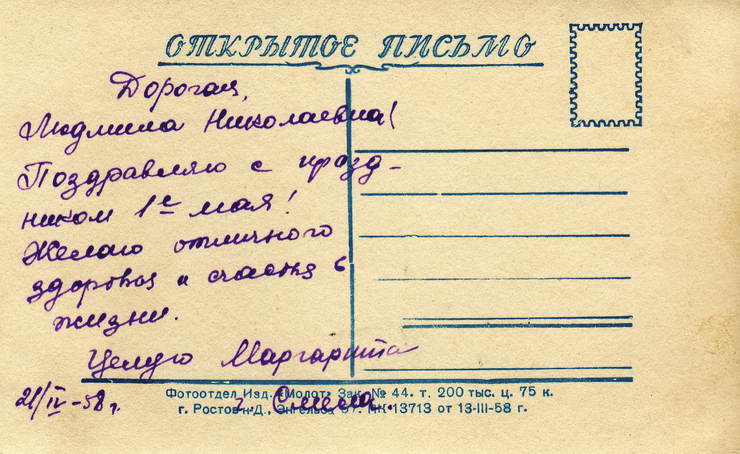 ОТКРЫТОЕ ПИСЬМО
Дорогая,
Людмила Николаевна!
Поздравляю с празд-
ником 1е мая!
Желаю отличного
здоровья и счастья в
жизни.
Целую Маргарита
21/IV-58 г.
Фотоотдел Изд. «Молот» Зак. № 44. т. 200 тыс. ц. 75 к.
г. Ростов н-Д., Энгельса 87. ПК 13713 от 13-III-58 г.